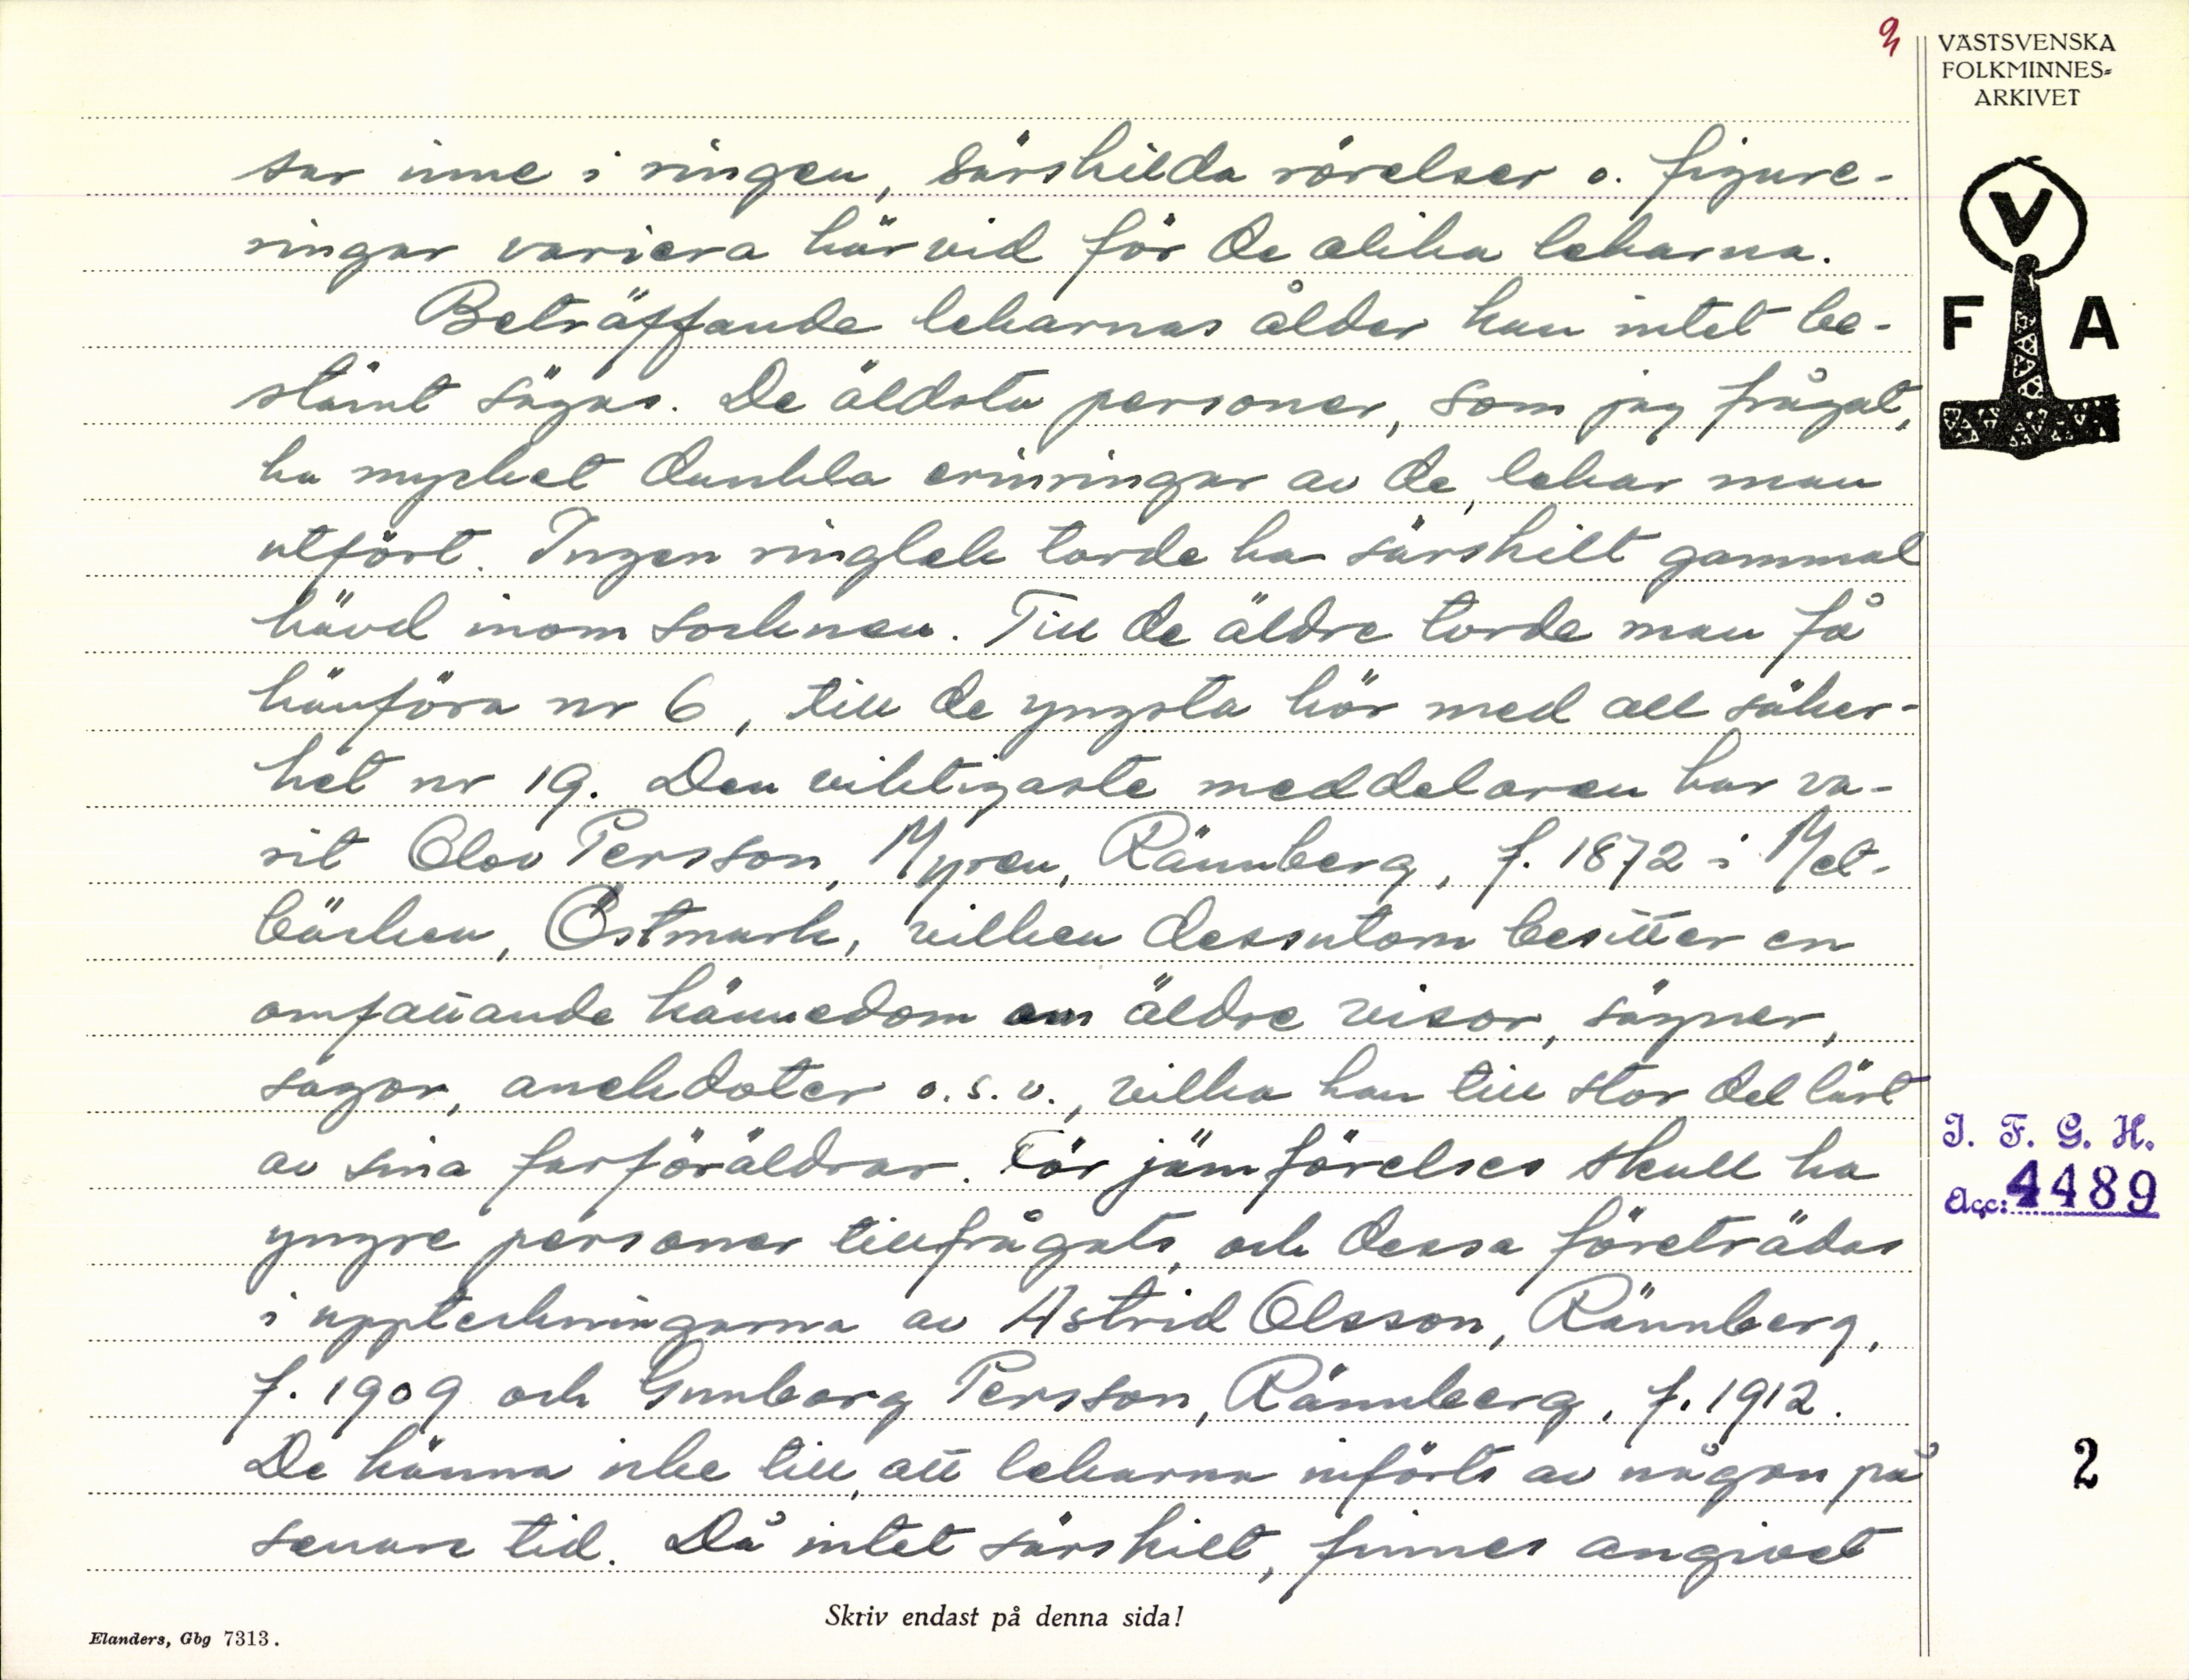 VÄSTSVENSKA
FOLKMINNES-
ARKIVET
V
F A
sar inne i ringen, särskilda rörelser o. figure-
ringar variera härvid för de olika lekarna.
Beträffande lekarnas ålder kan intet be-
stämt sägas. De äldsta personer, som jag frågat,
ha mycket dunkla erinringar av de lekar man
utfört. Ingen ringlek torde ha särskilt gammal
hävd inom socknen. Till de äldre torde man få
hänföra nr 6, till de yngsta hör med all säker-
het nr 19. Den viktigaste meddelaren har va-
rit Olov Persson, Myren, Rännberg, f. 1872 i Met-
bäcken, Östmark, vilken dessutom besitter en
omfattande kännedom om äldre visor, sägner,
sagor, anekdoter o.s.v., vilka han till stor del lärt
av sina farföräldrar. För jämförelses skull ha
yngre personer tillfrågats, och dessa företrädas
i uppteckningarna av Astrid Olsson, Rännberg,
f. 1909 och Gunborg Persson, Rännberg, f. 1912.
De känna icke till, att lekarna införts av någon på
senare tid. Då intet särskilt, finnes angivet
I. F. G. H.
Acc: 4489
2
Skriv endast på denna sida!
Elanders, Gbg 7313.